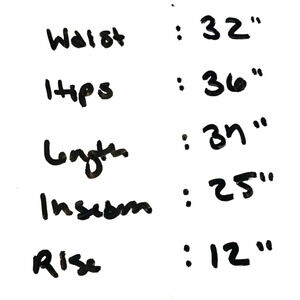 Waist : 32"
Hips : 36"
Length :
Inseam : 25"
Rise : 12"